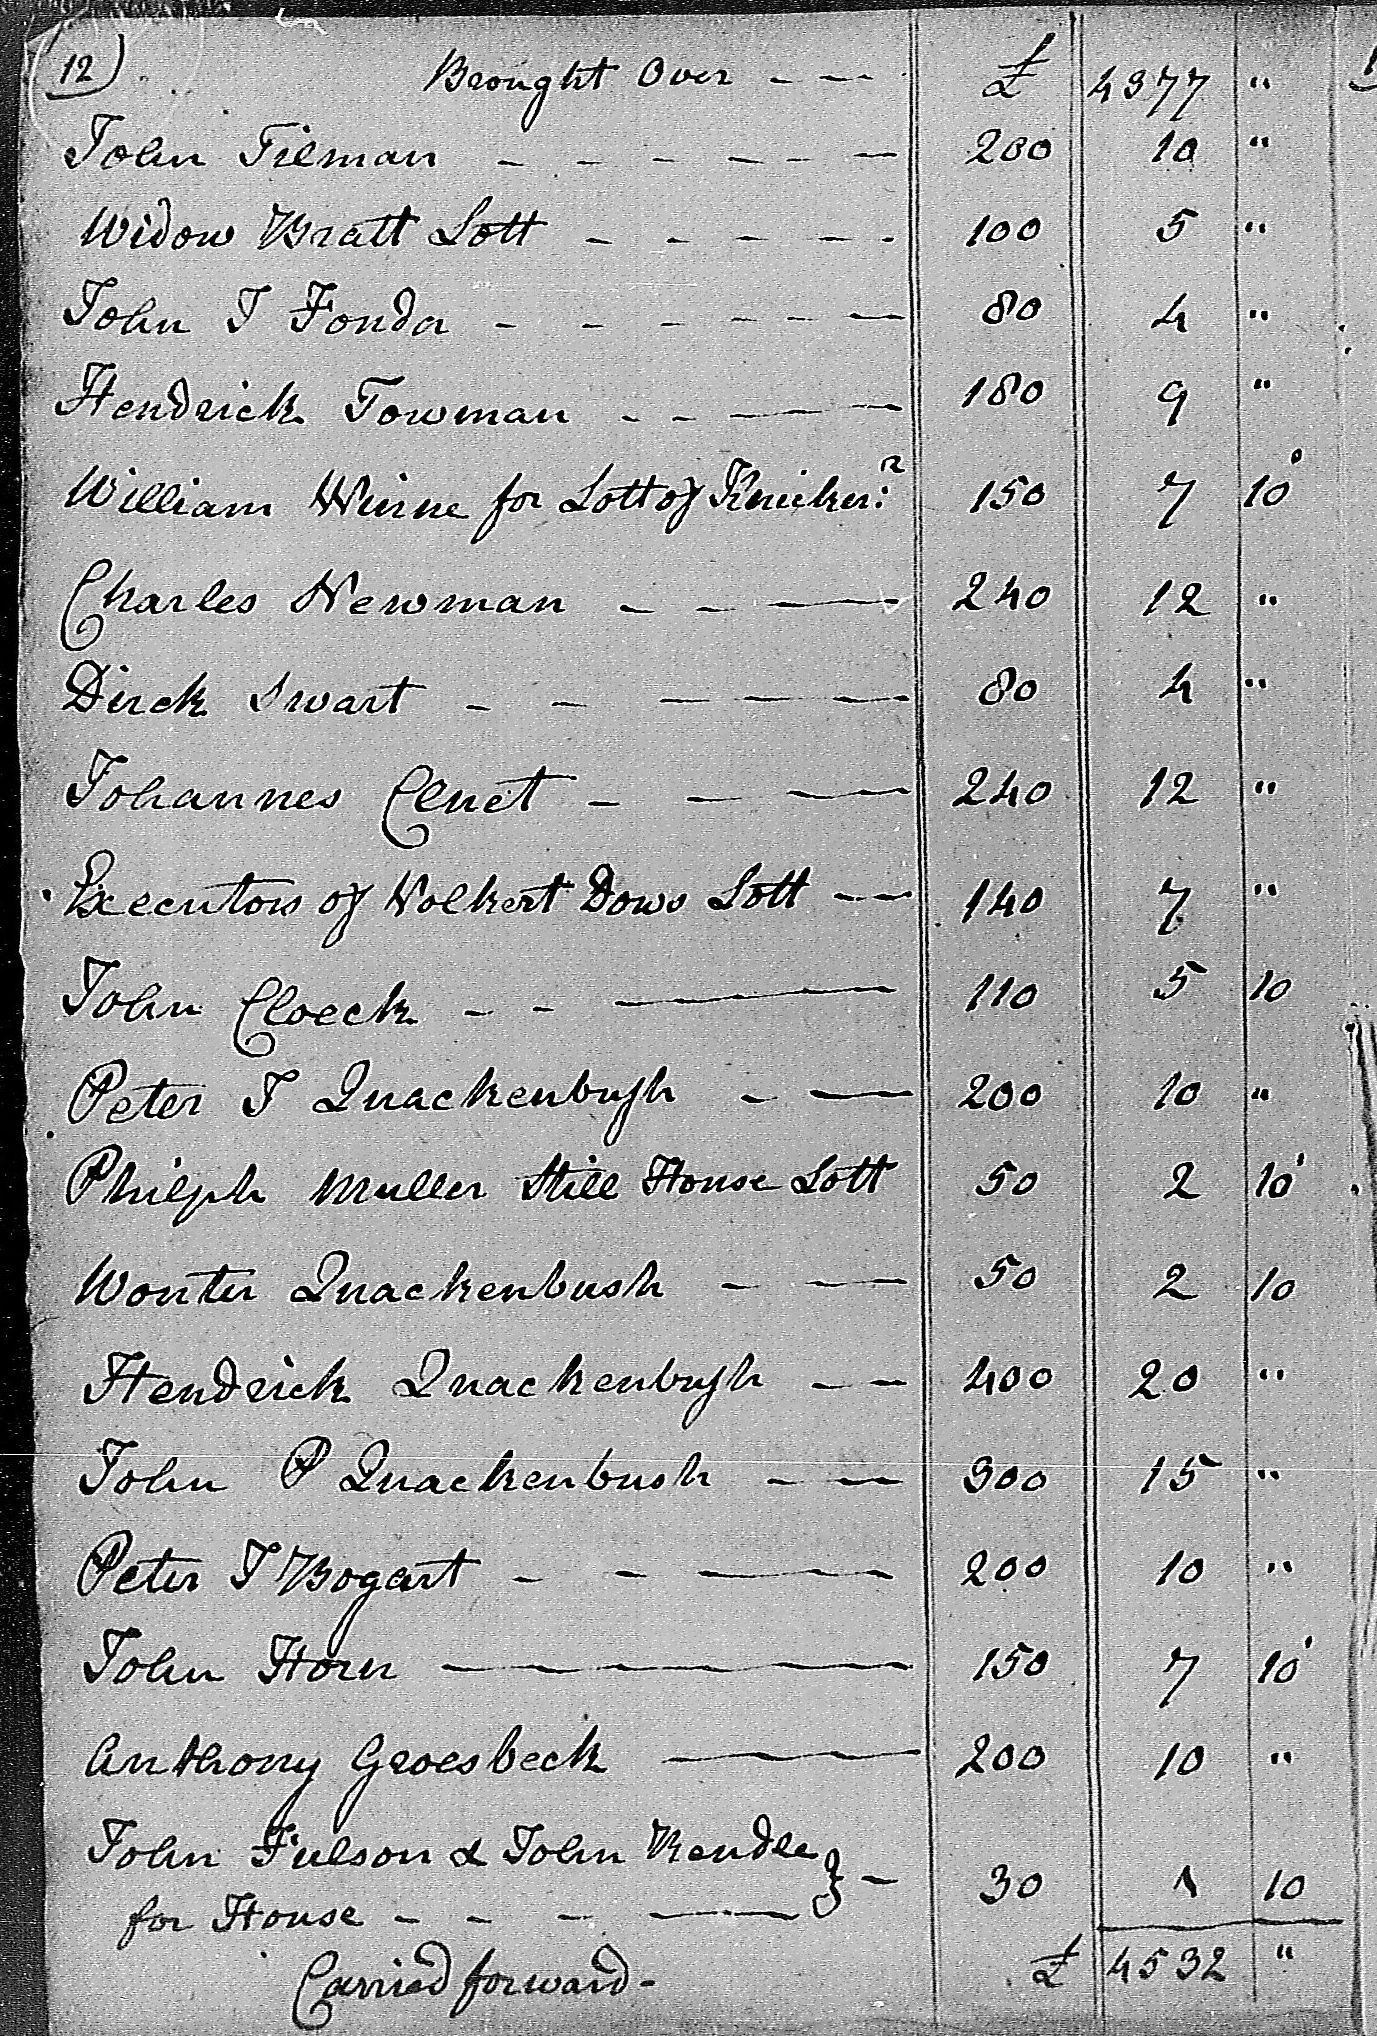 12 Brought Over - - - £ 4377 "
John Tilman - - - - - - 200 10 "
Widow Bratt Lott - - - - - 100 5 "
John J Fonda - - - - - - 80 4 "
Hendrick Towman - - - - 180 9 "
William Winne for Lott of Knicker:r 150 7 10
Charles Newman - - - 240 12 "
Dirck Swart - - - - - 80 4 "
Johannes Cluet - - - 240 12 "
Executors of Volkert Dows Lott - - 140 7 "
John Cloeck - - - 110 5 10
Peter J Quackenbush - - 200 10 "
Philiph Muller Still House Lott 50 2 10
Wouter Quackenbush - - - 50 2 10
Hendrick Quackenbush - - 400 20 "
John P Quackenbush - - - 300 15 "
Peter J Bogart - - - 200 10 "
John Horn - 150 7 10
Anthony Groesbeck - 200 10 "
John Fulson & John
for House - - - - } - 30 1 10
Carried forward - £ 4532 "